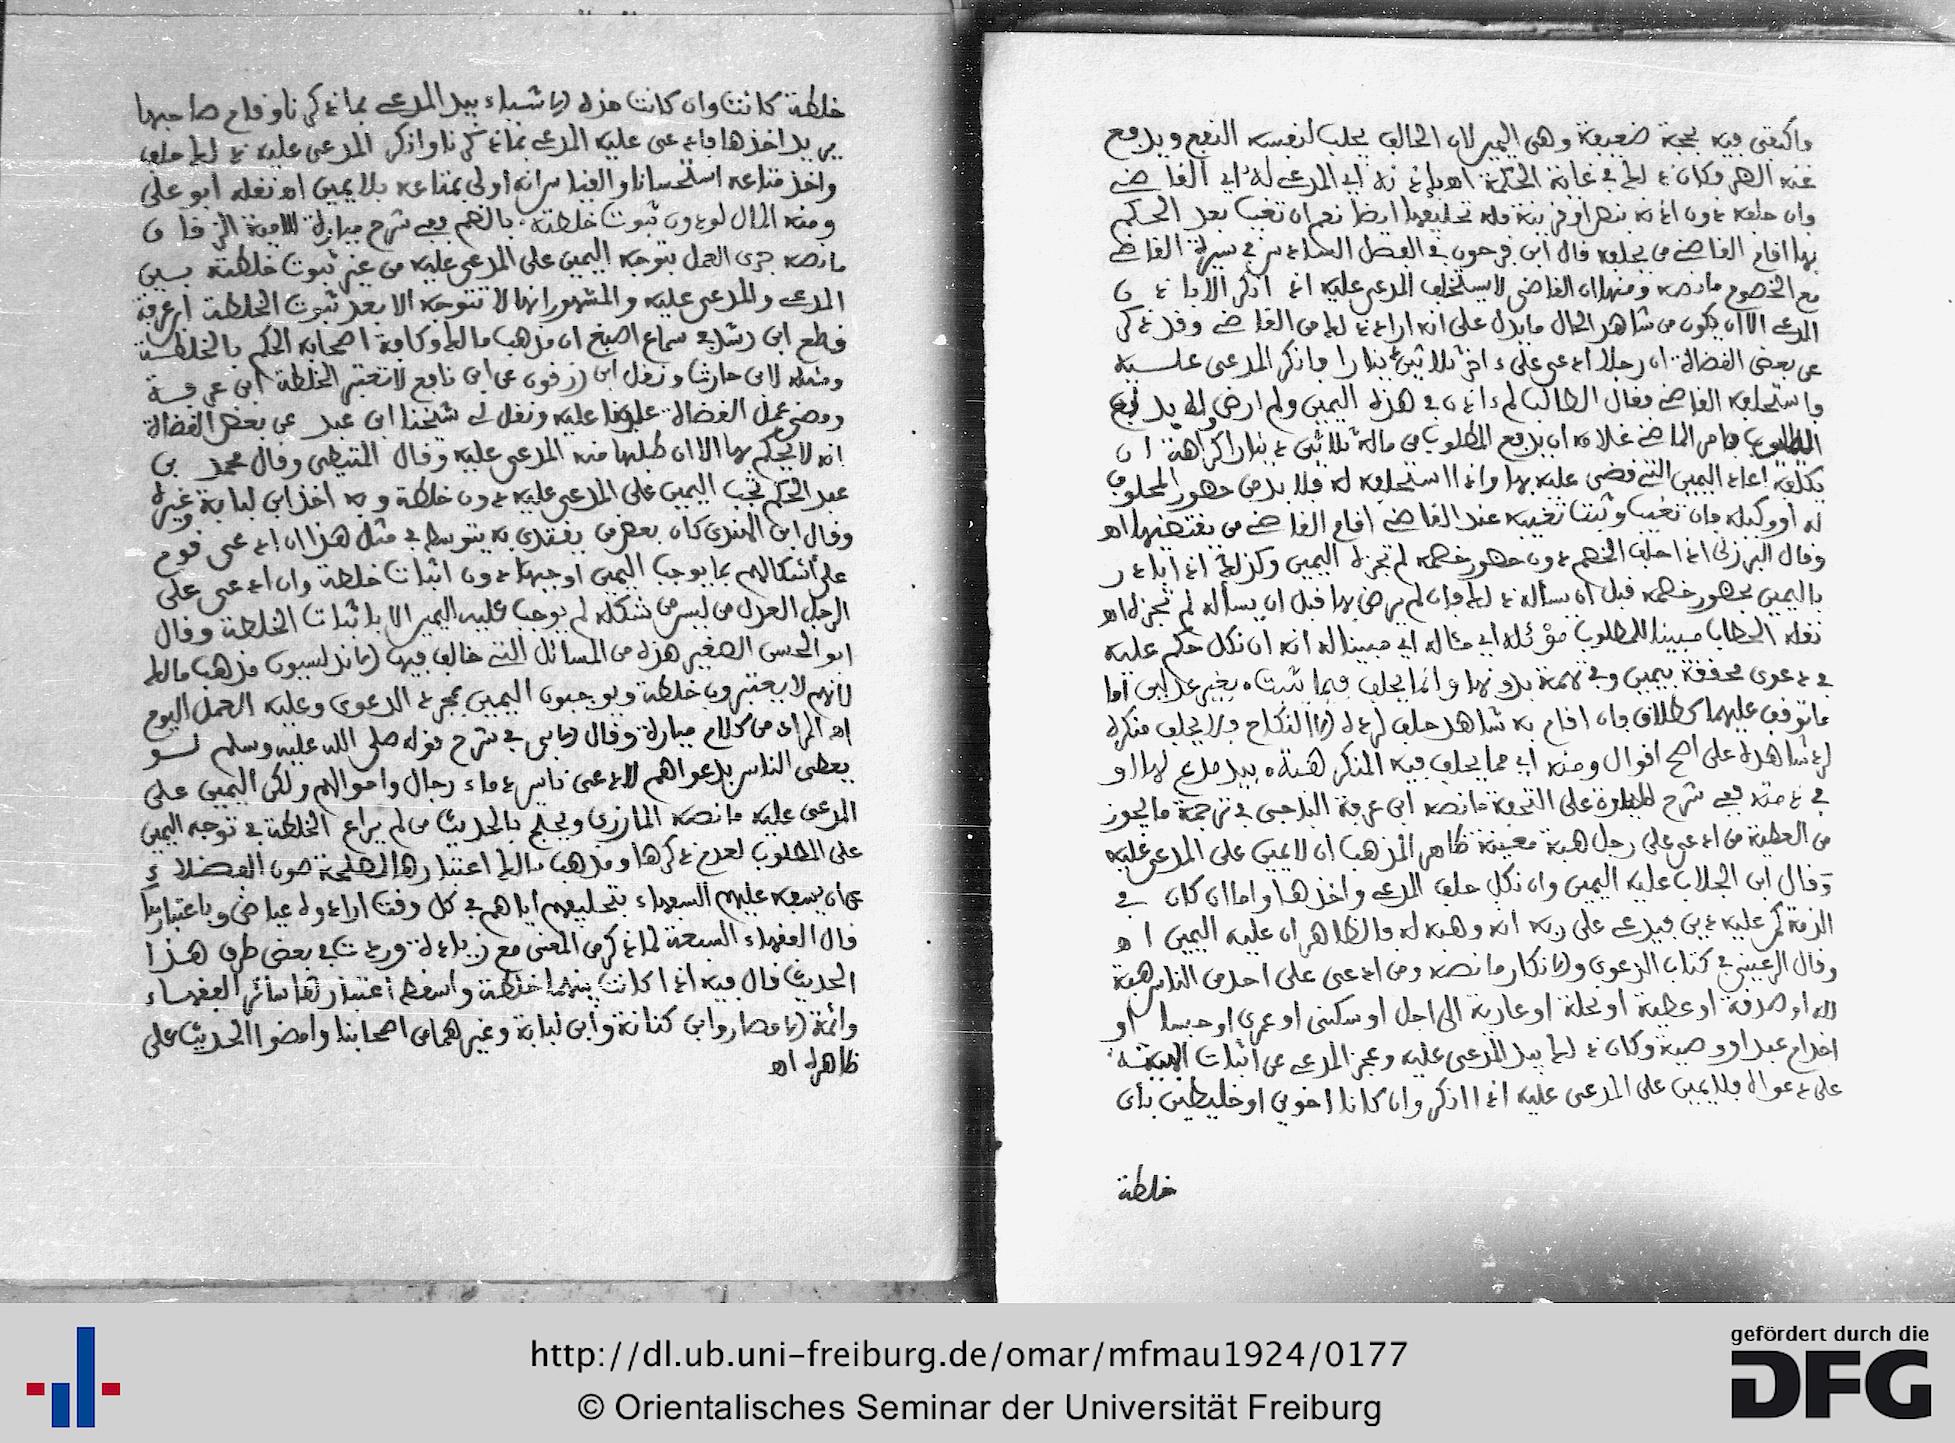 فاكتفى فيه بحجة ضعيفة وهي اليمين لان الحالف يجلب لنفسه النفع ويدفع
عنه الضر فكان ذلك في غاية الحكمة اه باذنه اي المدعي له اي القاضي
وان حلف دون اذنه بنص او قرينة فله تحليفها ايضا نعم ان تغيب بعد الحكم
بها اقام القاضي من يحلفه قال ابن فرحون في الفصل السادس في سيرة القاضي
مع الخصوم ما نصه ومنها ان القاضي لا يستحلف المدعى عليه اذا انكر الا باذن
المدعي الا ان يكون من شاهد الحال ما يدل على انه اراد ذلك من القاضي وقد ذكر
عن بعض القضاة ان رجلا ادعى على اخر ثلاثين دينارا فانكر المدعى عليه
فاستحلفه القاضي فقال الطالب لم ءاذن في هذه اليمين ولم ارض ولا بد ان
فامر القاضي غلامه ان يدفع المطلوب من ماله ثلاثين دينارا كراهة ان
يكلفه اعادة اليمين التي قضى عليه بها واذا استحلفه له فلا بد من حضور المحلوف
له او وكيله فان تغيب وثبت تغيبه عند القاضي اقام القاضي من يقتضيها اه
وقال البرزلي اذا حلف الخصم دون حضور خصمه لم تجزه اليمين وكذلك اذا بادر
باليمين بحضور خصمه قبل ان يسأله ذلك وان لم يرض بها قبل ان يسأله لم تجزه اه
نقله الحطاب مبينا للمطلوب مؤئله اي مئاله اي مبينا له انه ان نكل حكم عليه
في دعوى محققة بيمين وفي تهمة بدونها وانما يحلف فيما يثبت بغير عدلين اما
ما توقف عليهما كطلاق فان اقام به شاهد حلف لرده الا النكاح فلا يحلف منكره
لرد شاهده على اصح اقوال ومنه اي مما يحلف فيه المنكر هبة بيد مدع لها او
في ذمته ففي شرح ميارة على التحفة ما نصه ابن عرفة الباجي في ترجمة ما يجوز
من العطية من ادعى على رجل هبة معينة ظاهر المذهب ان لا يمين على المدعى عليه
وقال ابن الجلاب عليه اليمين وان نكل حلف المدعي واخذها واما ان كان في
الذمة كمن عليه دين فيدعي على ربه انه وهبه له فالظاهر ان عليه اليمين اه
وقال الرعيني في كتاب الدعوى والانكار ما نصه ومن ادعى على احد من الناس هبة
لله او صدقة او عطية او نحلة او عارية الى اجل او سكنى او عمرى او حبسا او
اخدام عبد او وصية وكان ذلك بيد المدعى عليه وعجز المدعي عن اثبات البينة
على دعواه فلا يمين على المدعى عليه اذا انكر وان كانا اخوين او خليطين باى
خلطة
خلطة كانت وان كانت هذه الاشياء بيد المدعي بما ذكرنا وقام صاحبها
يريد اخذها فادعى عليه المدعي بما ذكرنا وانكر المدعى عليه ذلك حلف
واخذ متاعه استحسانا والقياس انه اولى بمتاعه بلا يمين اه نقله ابو علي
ومنه المال لو دون ثبوت خلطة بالضم ففي شرح ميارة للامية الزقاق
ما نصه جرى العمل بتوجه اليمين على المدعى عليه من غير ثبوت خلطة بين
المدعي والمدعى عليه والمشهور انها لا تتوجه الا بعد ثبوت الخلطة ابن عرفة
قطع ابن رشد في سماع اصبغ ان مذهب مالك وكافة اصحابه الحكم بالخلطة
ومثله لابن حارث ونقل ابن زرقون عن ابن نافع لا تعتبر الخلطة ابن عرفة
ومضى عمل القضاة عليه ونقل لي شيخنا ابن عبد عن بعض القضاة
انه لا يحكم بها الا ان طلبها منه المدعى عليه وقال المتيطي وقال محمد بن
عبد الحكم تجب اليمين على المدعى عليه دون خلطة وبه اخذ ابن لبابة وغيره
وقال ابن الهندي كان بعض من يقتدى به يتوسط في مثل هذا ان ادعى قوم
على أشكالهم بما يوجب اليمين اوجبها دون اثبات خلطة وان ادعى على
الرجل العدل من ليس من شكله لم يوجب عليه اليمين الا باثبات الخلطة وقال
ابو الحسن الصغير هذه من المسائل التي خالف فيها الاندلسيون مذهب مالك
لانهم لا يعتبرون خلطة ويوجبون اليمين بمجرد الدعوى وعليه العمل اليوم
اه المراد من كلام ميارة وقال الابي في شرح قوله صلى الله عليه وسلم لو
يعطى الناس بدعواهم لادعى ناس دماء رجال واموالهم ولكن اليمين على
المدعى عليه ما نصه المازري ويحتج بالحديث من لم يراع الخلطة في توجه اليمين
على المطلوب لعدم ذكرها ومذهب مالك اعتبارها لمصلحة صون الفضلاء
عن ان يسفه عليهم السفهاء بتحليفهم اياهم في كل وقت ارادوه عياض وباعتبارها
قال الفقهاء السبعة لما ذكر من المعنى مع زيادة وردت في بعض طرق هذا
الحديث قال فيه اذا كانت بينهما خلطة واسقط اعتبارها سائر الفقهاء
وائمة الامصار وابن كنانة وابن لبابة وغيرهما من اصحابنا وامضوا الحديث على
ظاهره اه
http://dl.ub.uni-freiburg.de/omar/mfmau1924/0177
© Orientalisches Seminar der Universität Freiburg
gefördert durch die
DFG